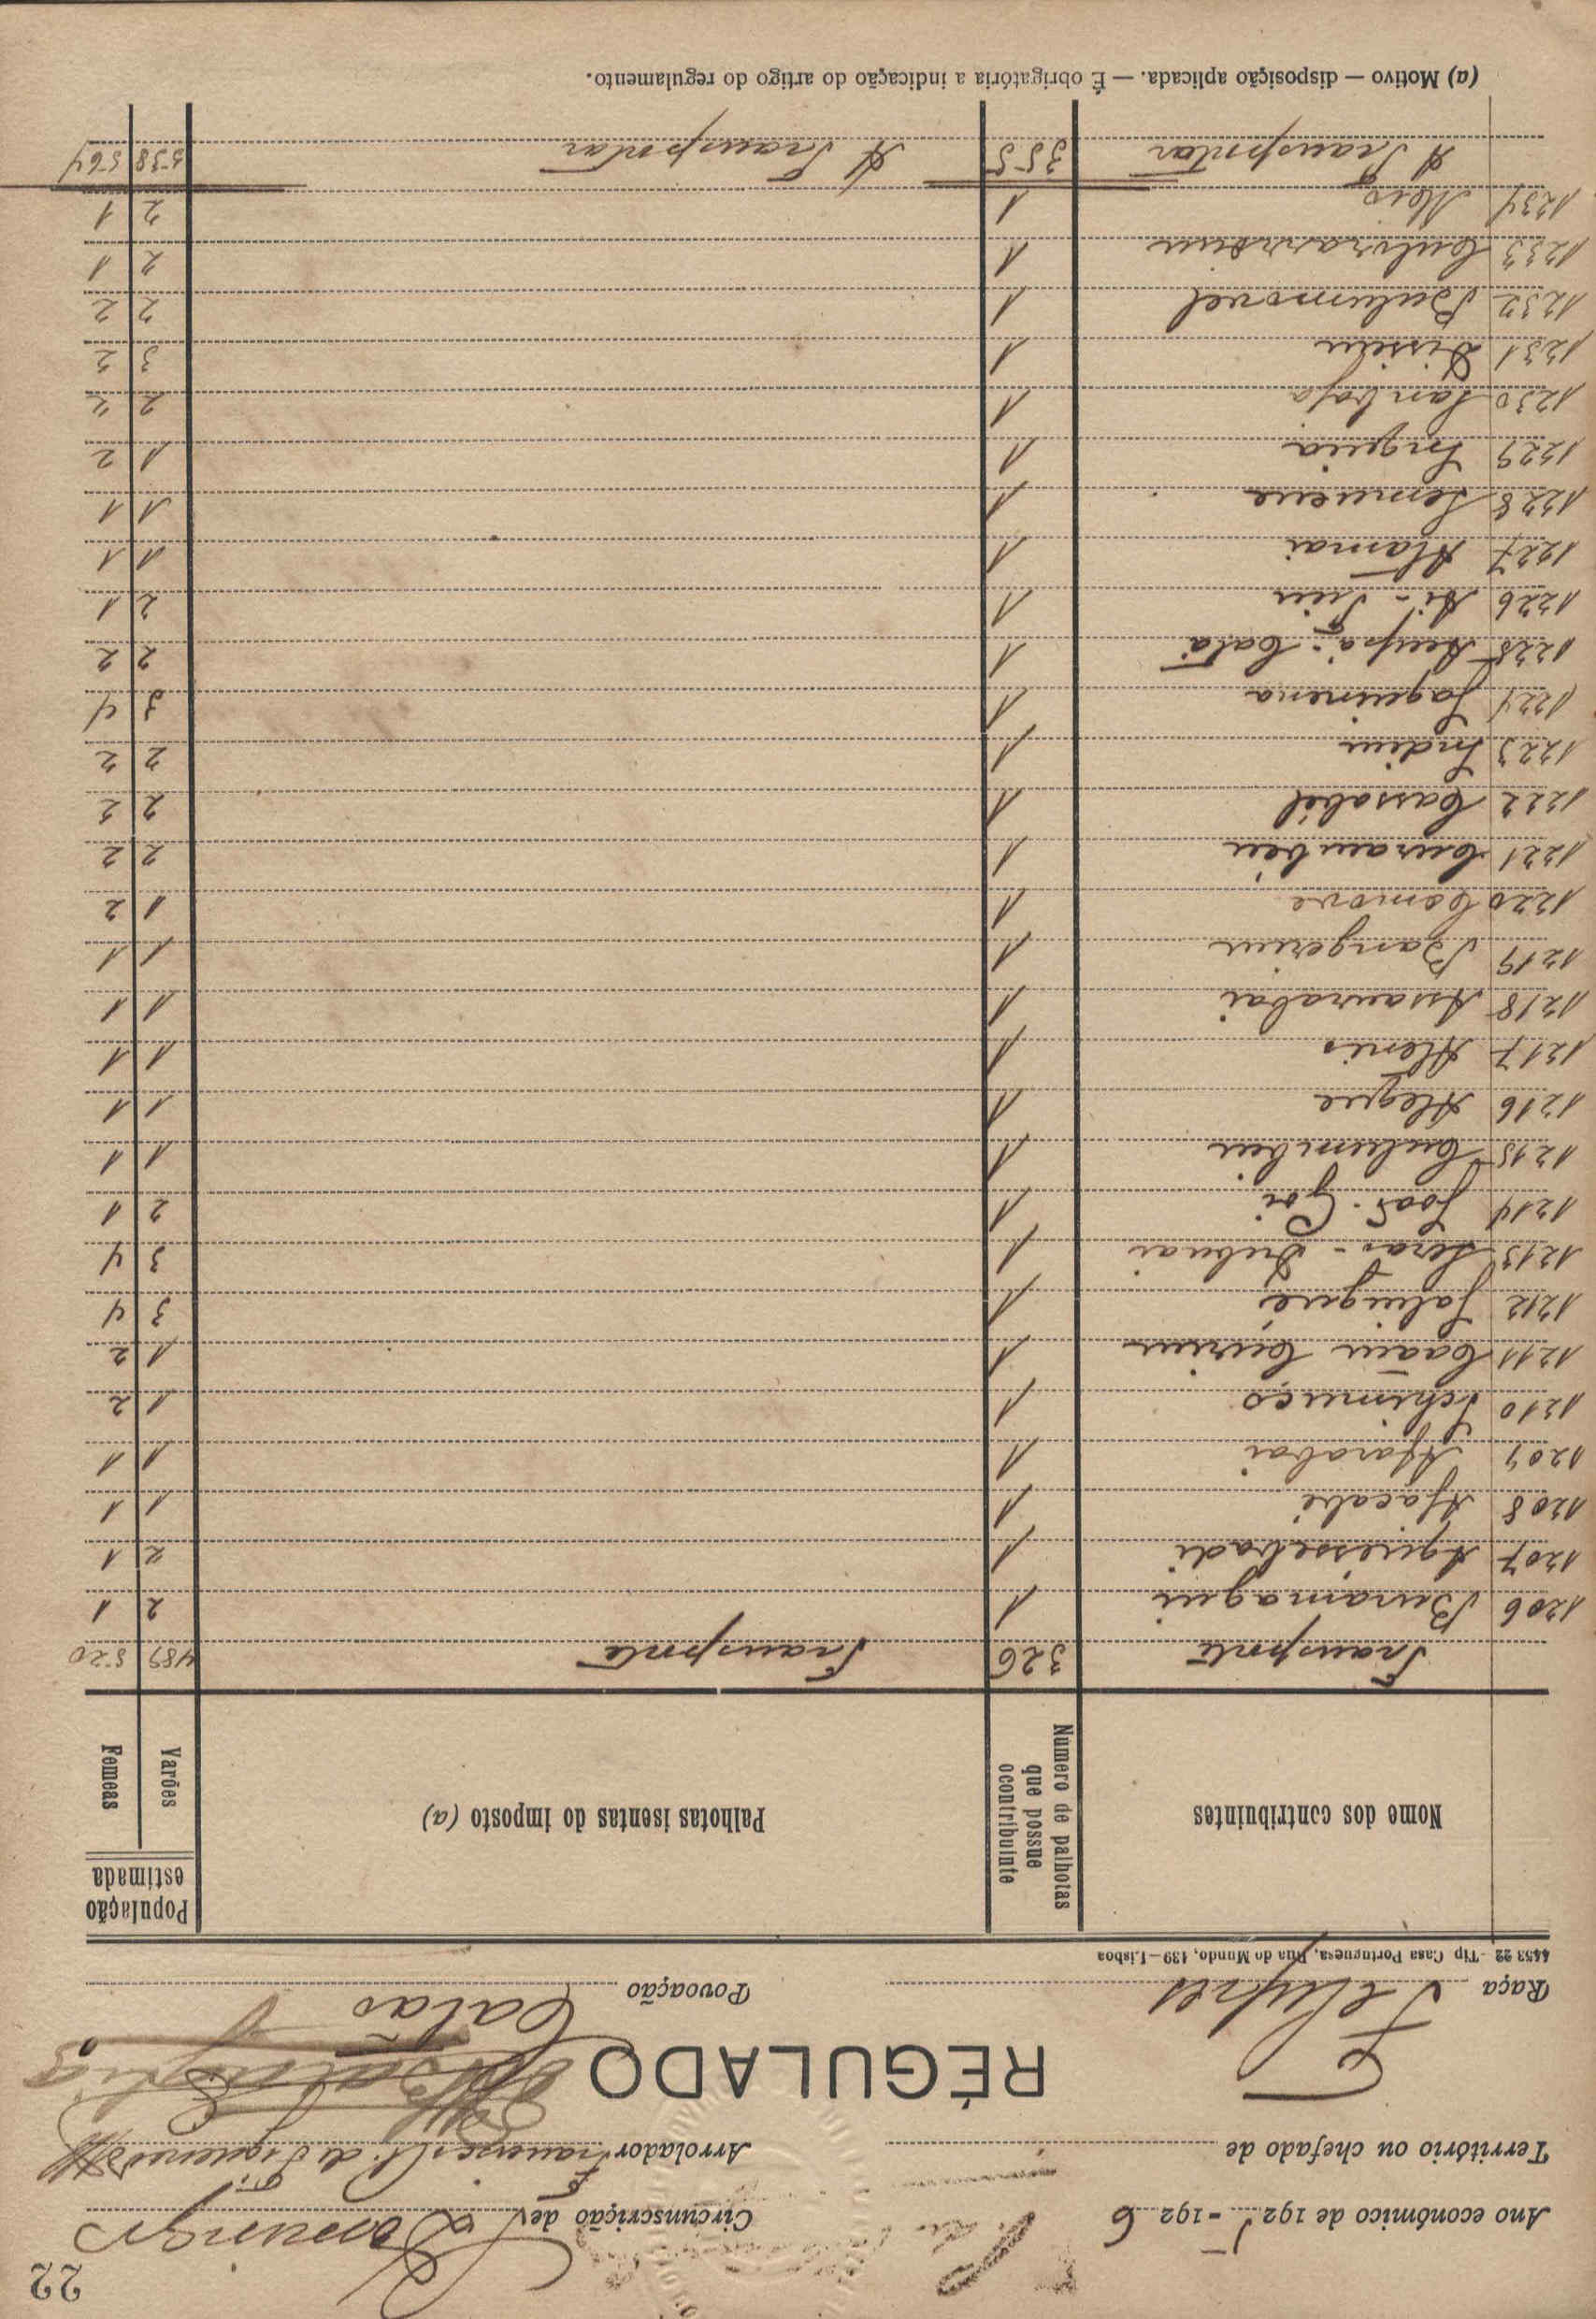 22
Ano económico de 1925-1926
Circunscrição de S. Domingos
Território ou chefado de
Arrolador Francisco A. de Siqueira
RÉGULADO
Raça Felupes
Povoação Catão
4453 22 - Tip Casa Portuguesa, Rua do Mundo, 139-Lisboa
Nome dos contribuintes
Numero de palhotas que possue ocontribuinte
Palhotas isentas do imposto (a)
População estimada
Varões
Femeas
Transporte 326 Transporte 489 520
1206 Buramagui 1 2 1
1207 Aquessebadi 1 2 1
1208 Ajacabé 1 1 1
1209 Ajarabai 1 1 1
1210 Schimuço 1 1 2
1211 Caain Curium 1 1 2
1212 Jalinguré 1 3 4
1213 Seras-Dubuai 1 3 4
1214 Joat-Goi 1 2 1
1215 Culumbui 1 1 1
1216 Alegue 1 1 1
1217 Alenis 1 1 1
1218 Assaurabai 1 1 1
1219 Bangerium 1 1 1
1220 Comove 1 1 2
1221 Curambéu 1 2 2
1222 Cassabil 1 2 2
1223 Indiur 1 2 2
1224 Jaquimena 1 3 4
1225 Aupá-Catá 1 2 2
1226 Ai-Siu 1 2 1
1227 Mamai 1 1 1
1228 Semuene 1 1 1
1229 Inguia 1 1 2
1230 Sambojá 1 2 2
1231 Dissein 1 3 2
1232 Bulumovel 1 2 2
1233 Cubraroum 1 2 1
1234 Nois 1 2 1
A Transportar 355 A Transportar 538 564
(a) Motivo — disposição aplicada. — É obrigatória a indicação do artigo do regulamento.